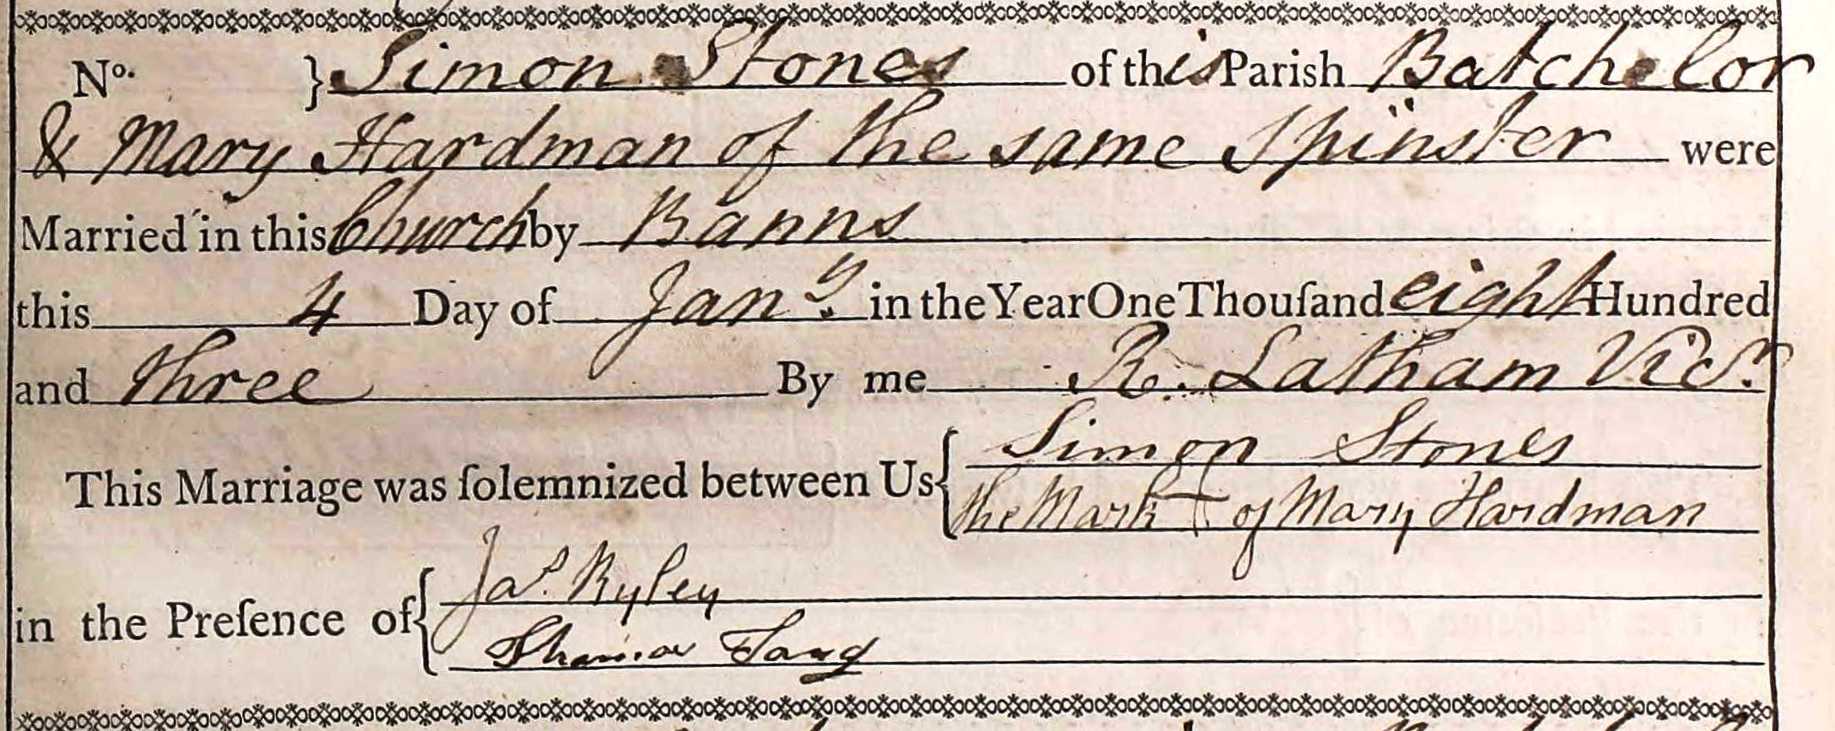 No. } Simon Stones of this Parish Batchelor
& Mary Hardman of the same Spinster were
Married in this Church by Banns
this 4 Day of Jany. in the Year One Thouſand eight Hundred
and three By me R. Latham Vicr.
This Marriage was ſolemnized between Us { Simon Stones
the Mark + of Mary Hardman
in the Preſence of { Jas. Ryley
Thomas